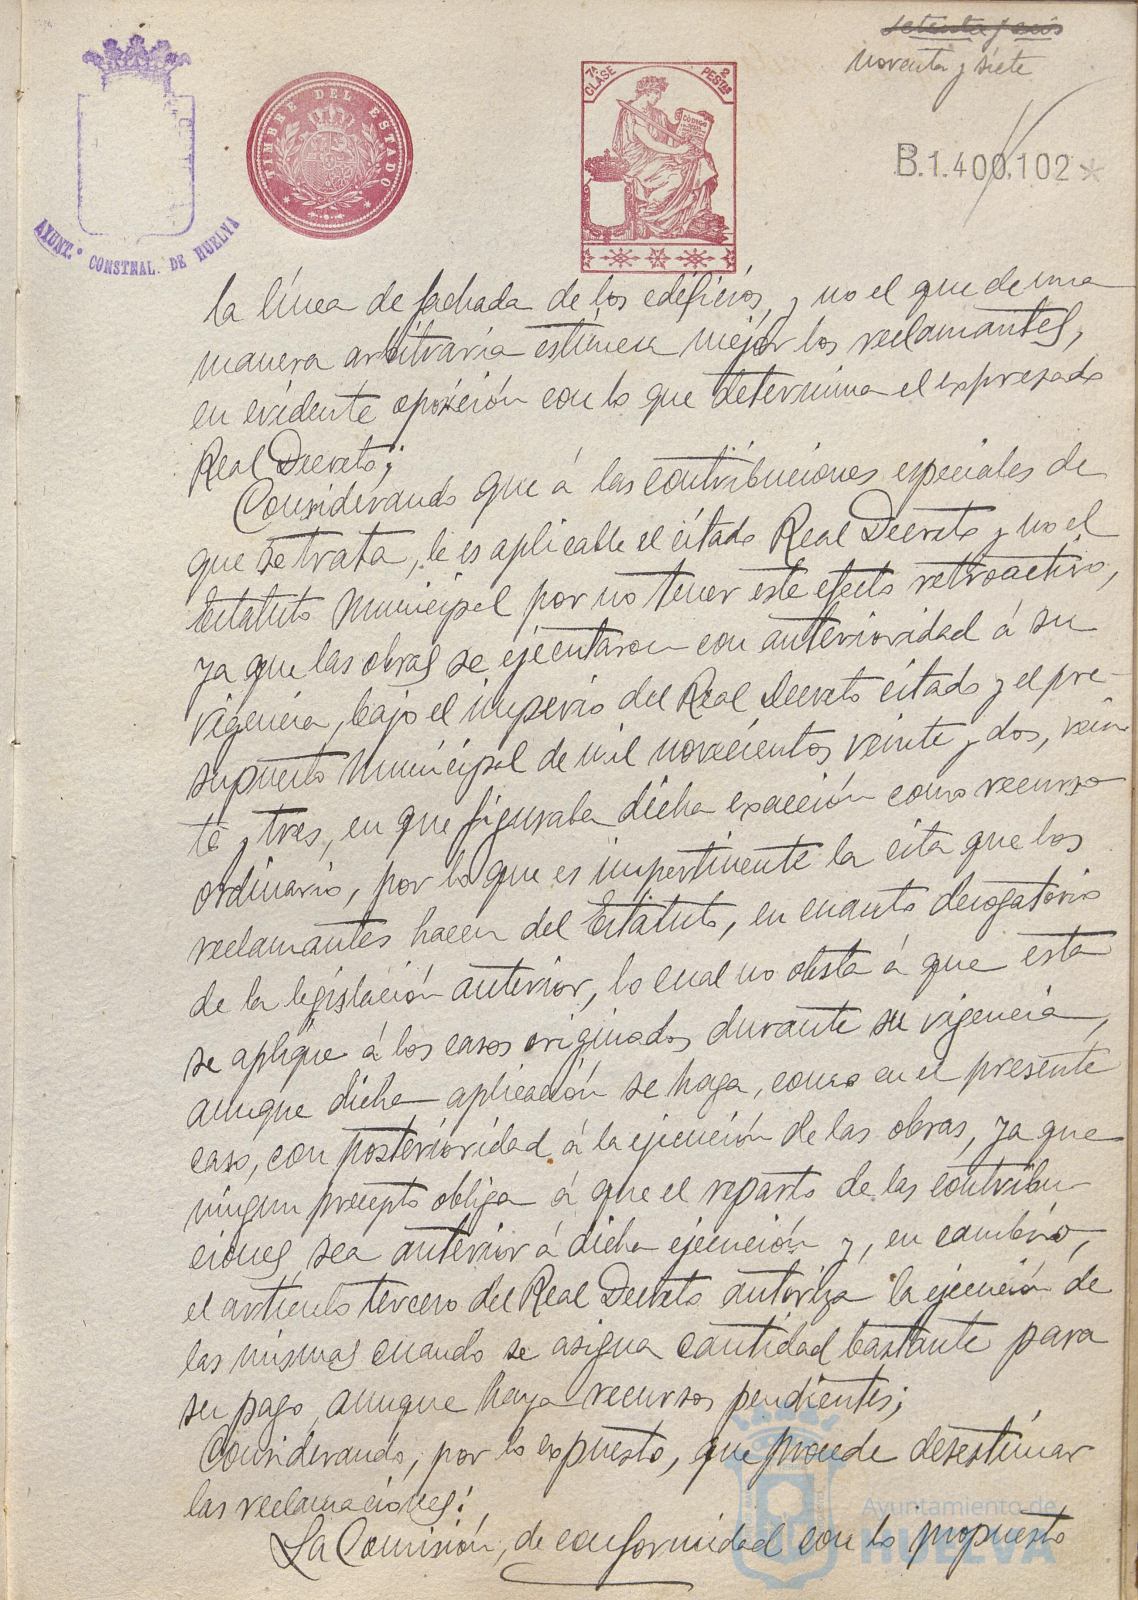 setenta y seis
noventa y siete
TIMBRE DEL ESTADO
7ª CLASE
2 PESTAS
CÓDIGO
B.1.400.102*
AYUNT.º CONSTNAL. DE HUELVA
la línea de fachada de los edificios, y no el que de una
manera arbitraria estimen mejor los reclamantes,
en evidente oposición con lo que determina el expresado
Real Decreto;
Considerando que á las contribuciones especiales de
que se trata, le es aplicable el citado Real Decreto y no el
Estatuto Municipal por no tener este efecto retroactivo,
ya que las obras se ejecutaron con anterioridad á su
vigencia, bajo el imperio del Real Decreto citado y el pre-
supuesto Municipal de mil novecientos veinte y dos, vein
te y tres, en que figuraba dicha exacción como recurso
ordinario, por lo que es impertinente la cita que los
reclamantes hacen del Estatuto, en cuanto derogatorio
de la legislación anterior, lo cual no obsta á que esta
se aplique á los casos originados durante su vigencia,
aunque dicha aplicación se haga, como en el presente
caso, con posterioridad á la ejecución de las obras, ya que
ningun precepto obliga á que el reparto de las contribu-
ciones sea anterior á dicha ejecución y, en cambio,
el artículo tercero del Real Decreto autoriza la ejecución de
las mismas cuando se asigna cantidad bastante para
su pago, aunque haya recursos pendientes;
Considerando, por lo expuesto, que procede desestimar
las reclamaciones;
La Comisión, de conformidad con lo propuesto
Ayuntamiento de
HUELVA